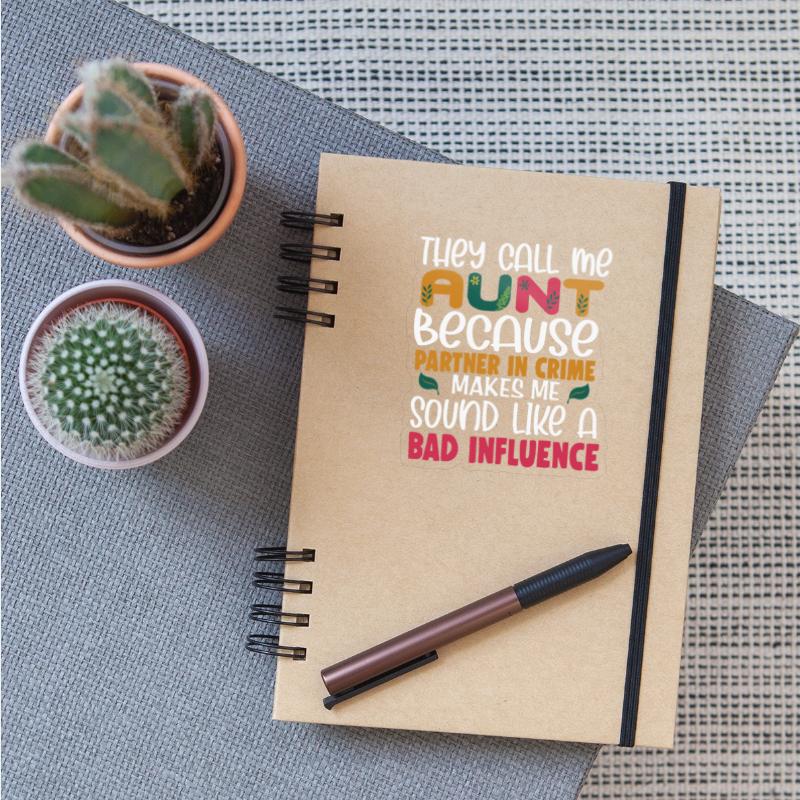 THEY CALL ME
AUNT
BECAUSE
PARTNER IN CRIME
MAKES ME
SOUND LIKE A
BAD INFLUENCE